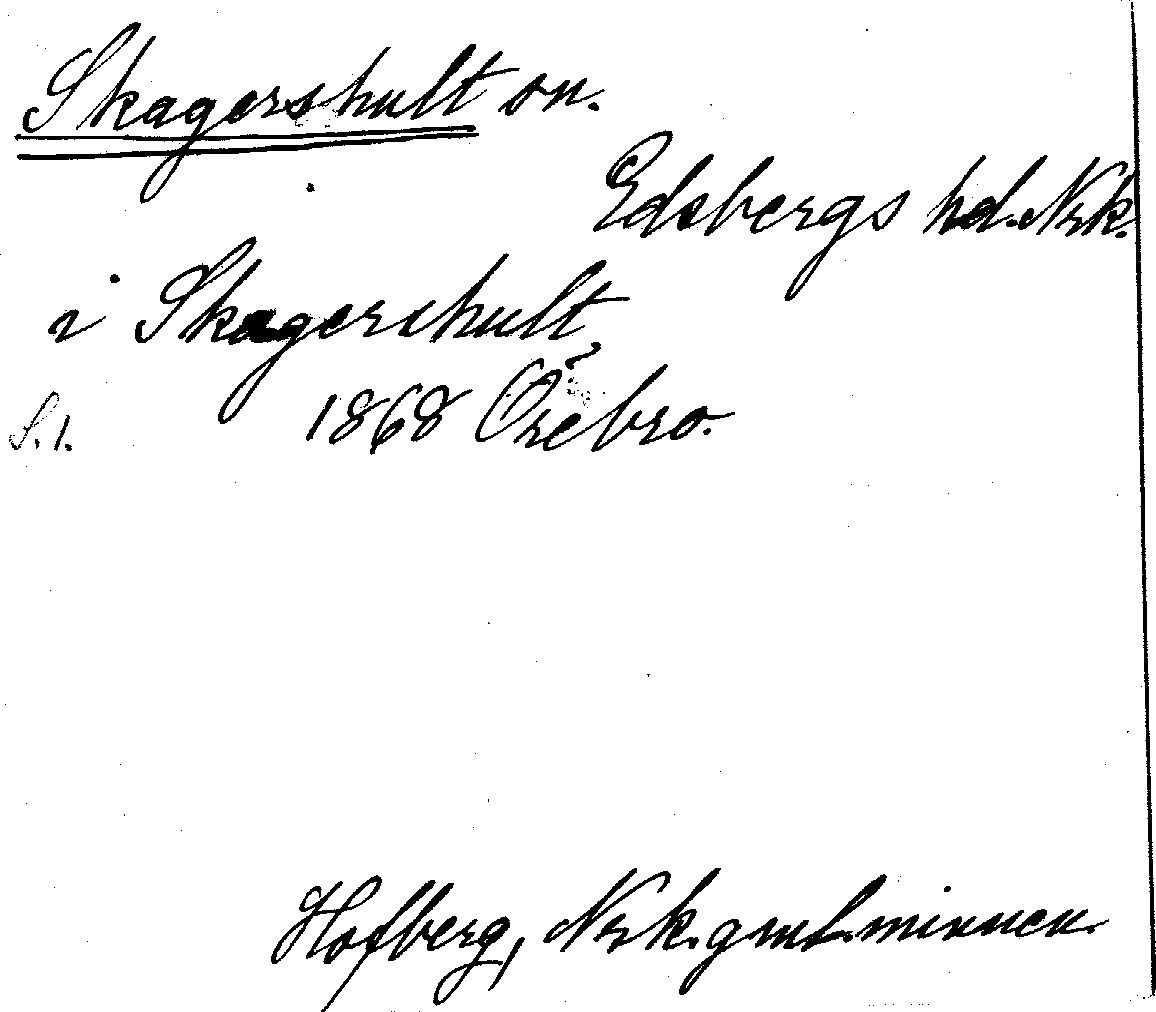 Skagershult sn.
Edsbergs hd. Nrk.
i Skagershult
S. 1. 1868 Örebro.
Hofberg, Nrk. gml. minnen.